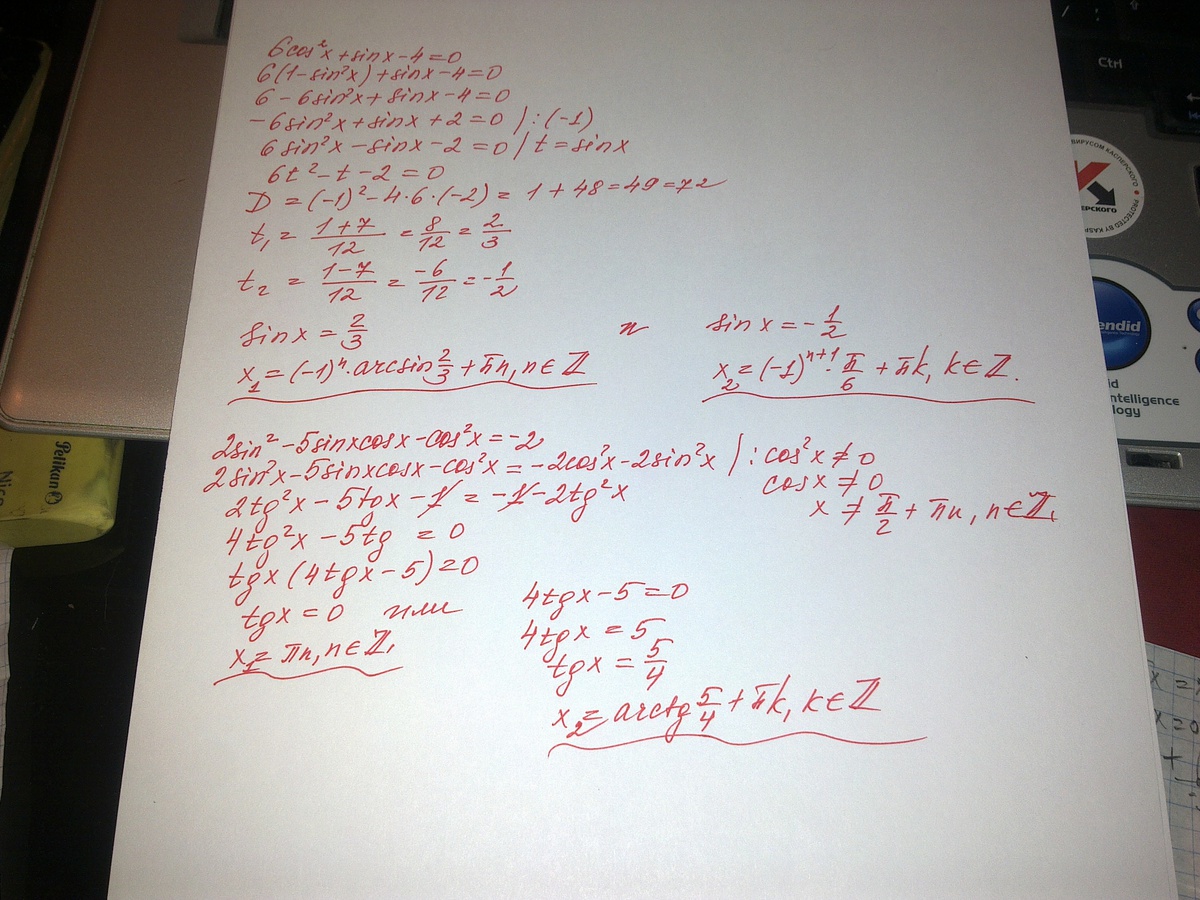 6cos²x + sinx - 4 = 0
6(1 - sin²x) + sinx - 4 = 0
6 - 6sin²x + sinx - 4 = 0
-6sin²x + sinx + 2 = 0 / : (-1)
6sin²x - sinx - 2 = 0 / t = sinx
6t² - t - 2 = 0
D = (-1)² - 4·6·(-2) = 1 + 48 = 49 = 7²
t₁ = (1+7)/12 = 8/12 = 2/3
t₂ = (1-7)/12 = -6/12 = -1/2
sinx = 2/3 и sinx = -1/2
x₁ = (-1)ⁿ·arcsin 2/3 + πn, n∈ℤ
x₂ = (-1)ⁿ⁺¹·π/6 + πk, k∈ℤ.
2sin² - 5sinxcosx - cos²x = -2
2sin²x - 5sinxcosx - cos²x = -2cos²x - 2sin²x / : cos²x ≠ 0
cosx ≠ 0
2tg²x - 5tgx - 1 = -1 - 2tg²x
x ≠ π/2 + πn, n∈ℤ,
4tg²x - 5tg = 0
tgx (4tgx - 5) = 0
tgx = 0 или 4tgx - 5 = 0
x₁ = πn, n∈ℤ,
4tgx = 5
tgx = 5/4
x₂ = arctg 5/4 + πk, k∈ℤ
Ctrl
ВИРУСОМ КАСПЕРСКОГО
PROTECTED BY KAS
ЕРСКОГО
endid
ntelligence
logy
Pelikan